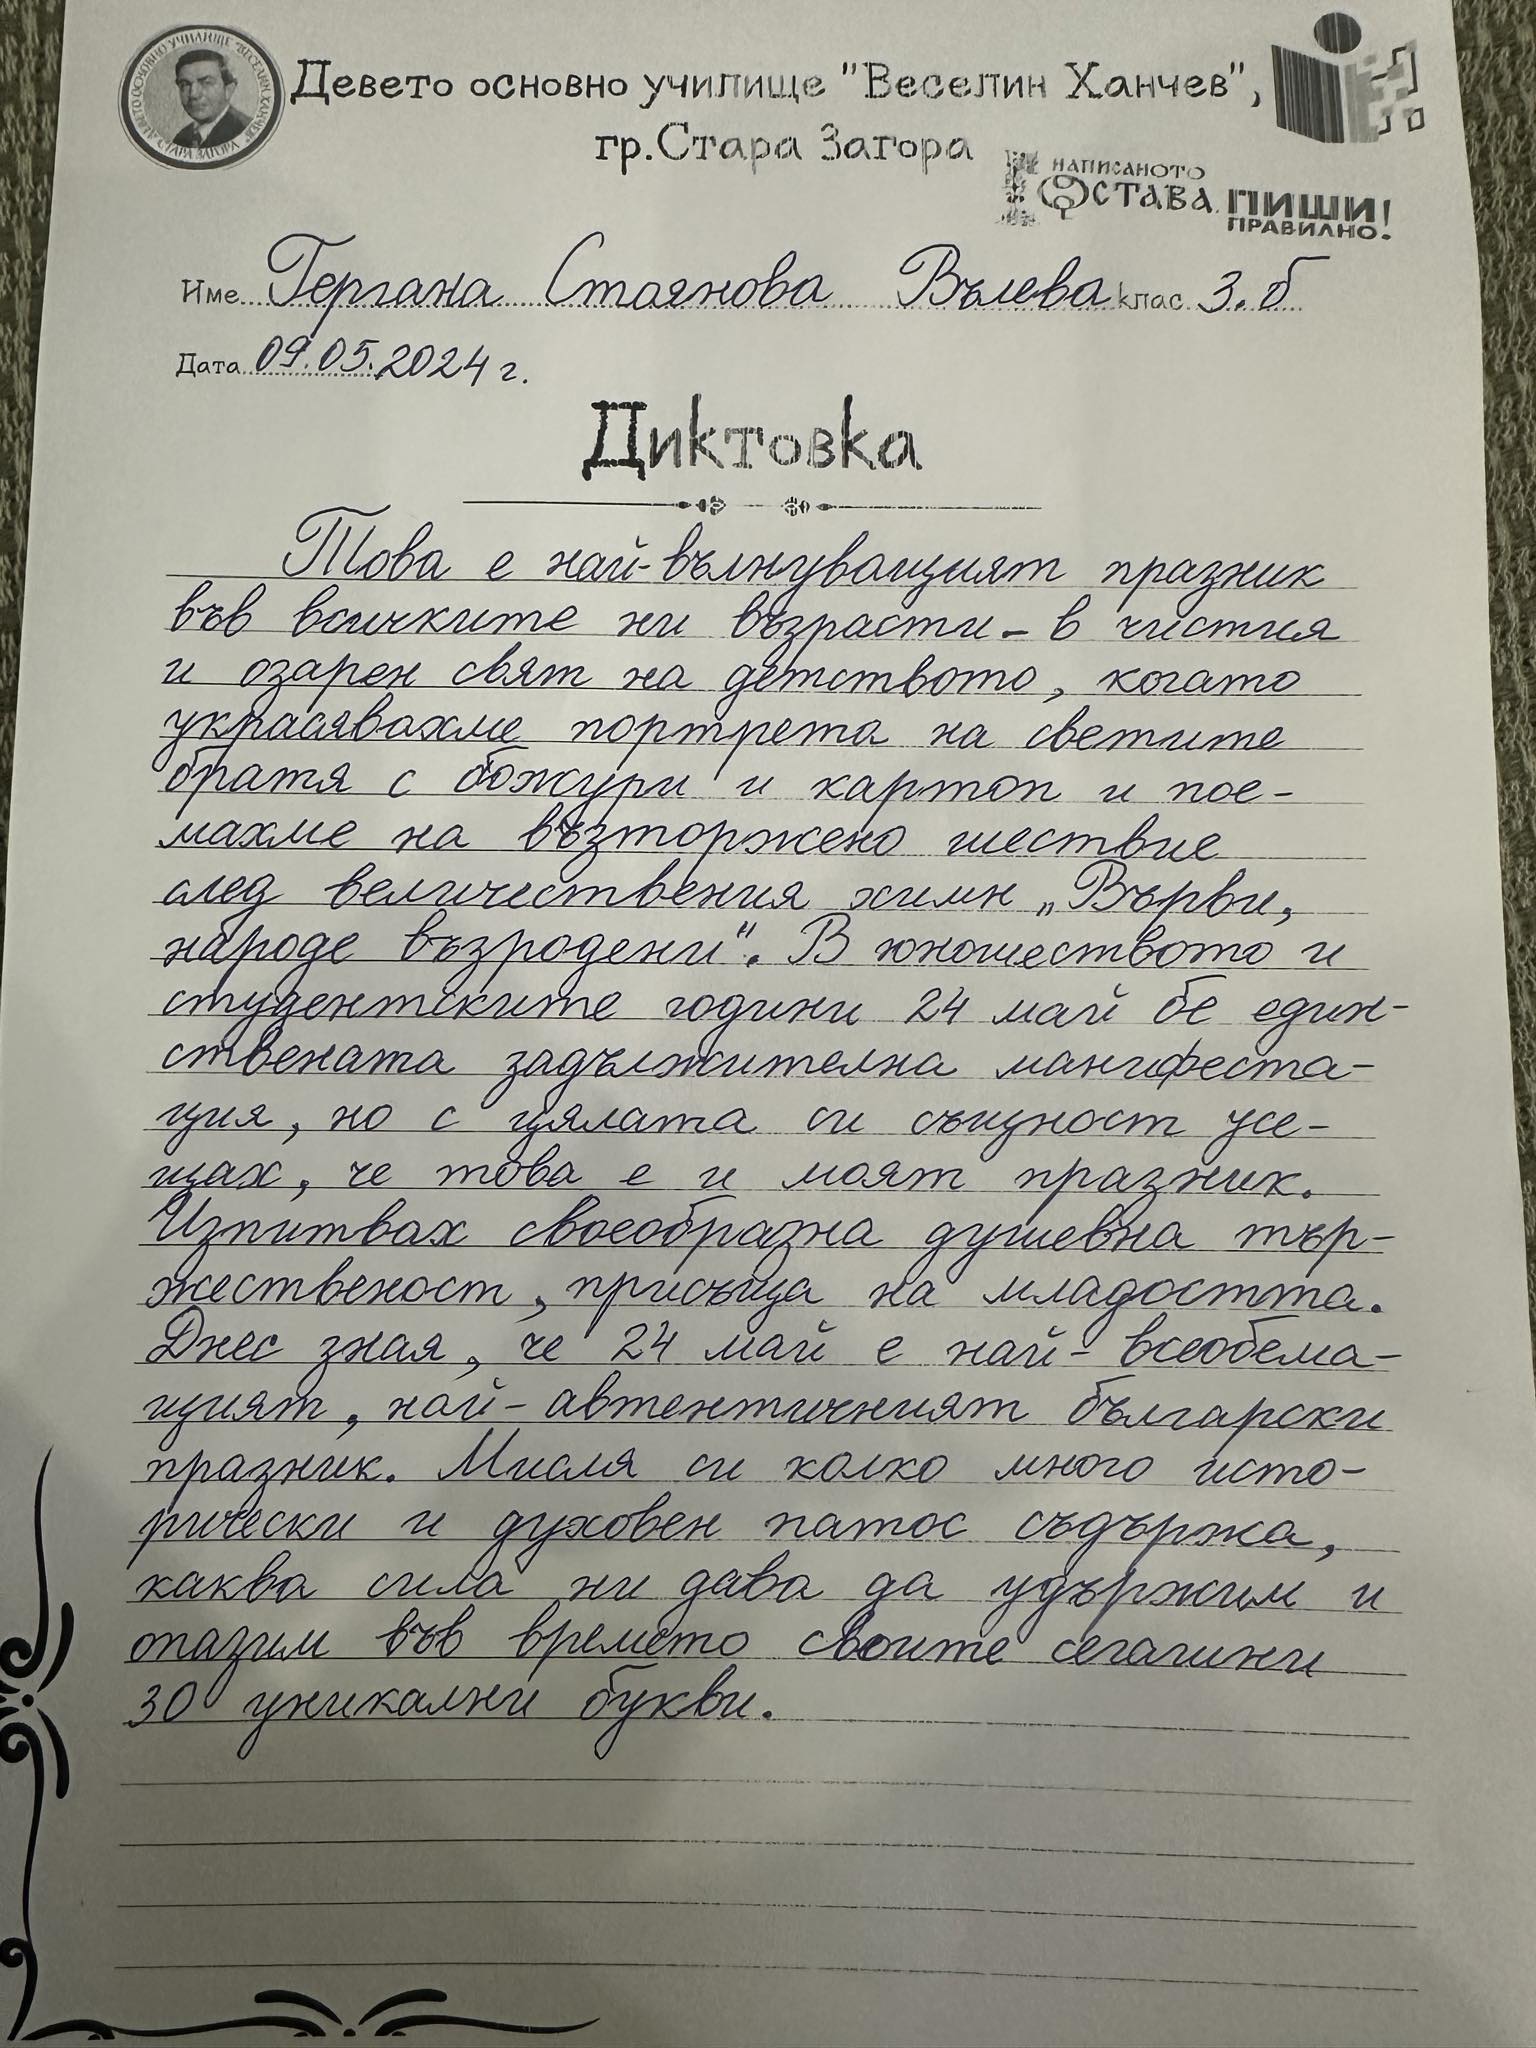 ДЕВЕТО ОСНОВНО УЧИЛИЩЕ "ВЕСЕЛИН ХАНЧЕВ"
СТАРА ЗАГОРА
Девето основно училище "Веселин Ханчев",
гр.Стара Загора
НАПИСАНОТО
ОСТАВА. ПИШИ
ПРАВИЛНО!
Име Гергана Стоянова Вълева клас 3. б
Дата 09.05.2024 г.
Диктовка
Това е най-вълнуващият празник
във всичките ни възрасти - в чистия
и озарен свят на детството, когато
украсявахме портрета на светите
братя с божури и картоп и пое-
махме на възторжено шествие
след величествения химн „Върви,
народе възродени". В юношеството и
студентските години 24 май бе един-
ствената задължителна манифеста-
ция, но с цялата си същност усе-
щах, че това е и моят празник.
Изпитвах своеобразна душевна тър-
жественост, присъща на младостта.
Днес зная, че 24 май е най- всеобема-
щият, най- автентичният български
празник. Мисля си колко много исто-
рически и духовен патос съдържа,
каква сила ни дава да удържим и
опазим във времето своите сегашни
30 уникални букви.